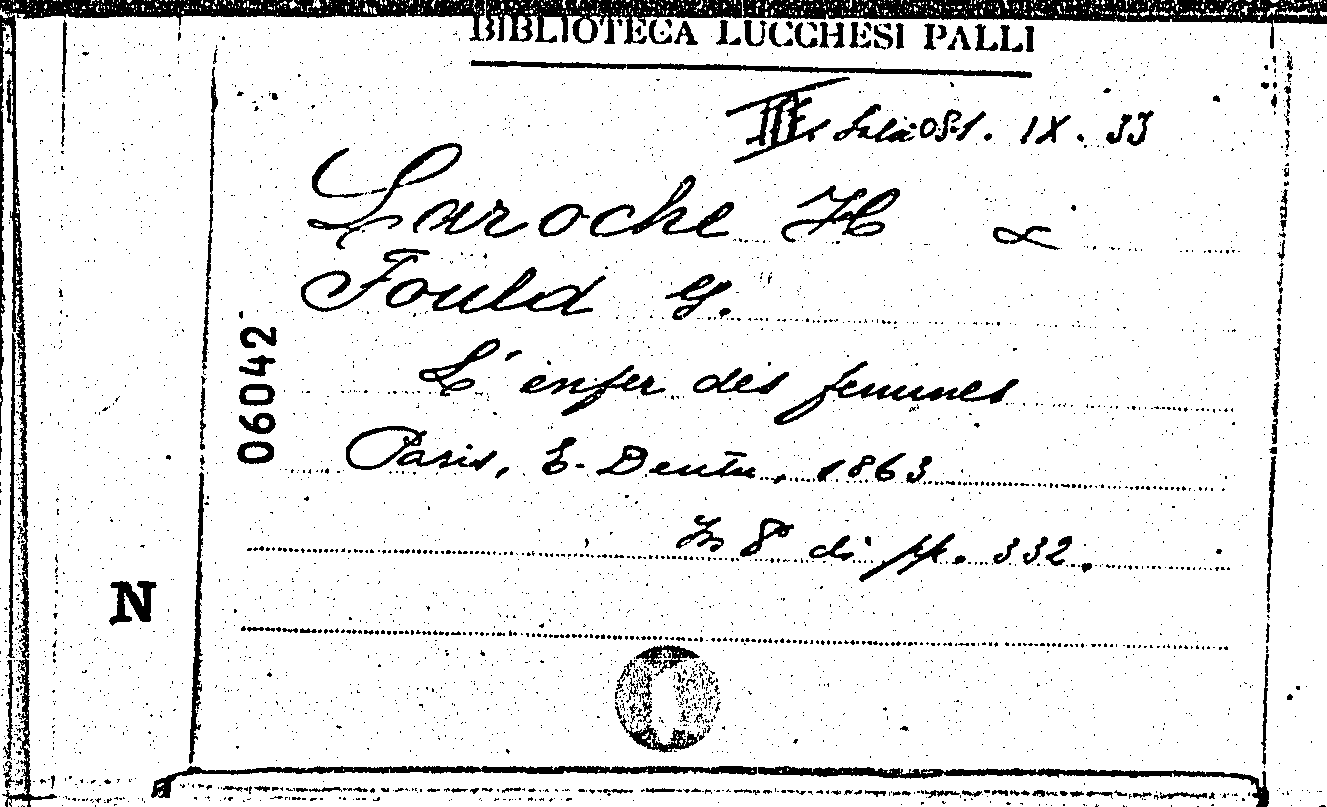 BIBLIOTECA LUCCHESI PALLI
IIIª Sala 081. IX. 33
Laroche H &
Fould G.
L'enfer des femmes
Paris, E. Dentu, 1863
In 8º di pp. 332.
06042
N